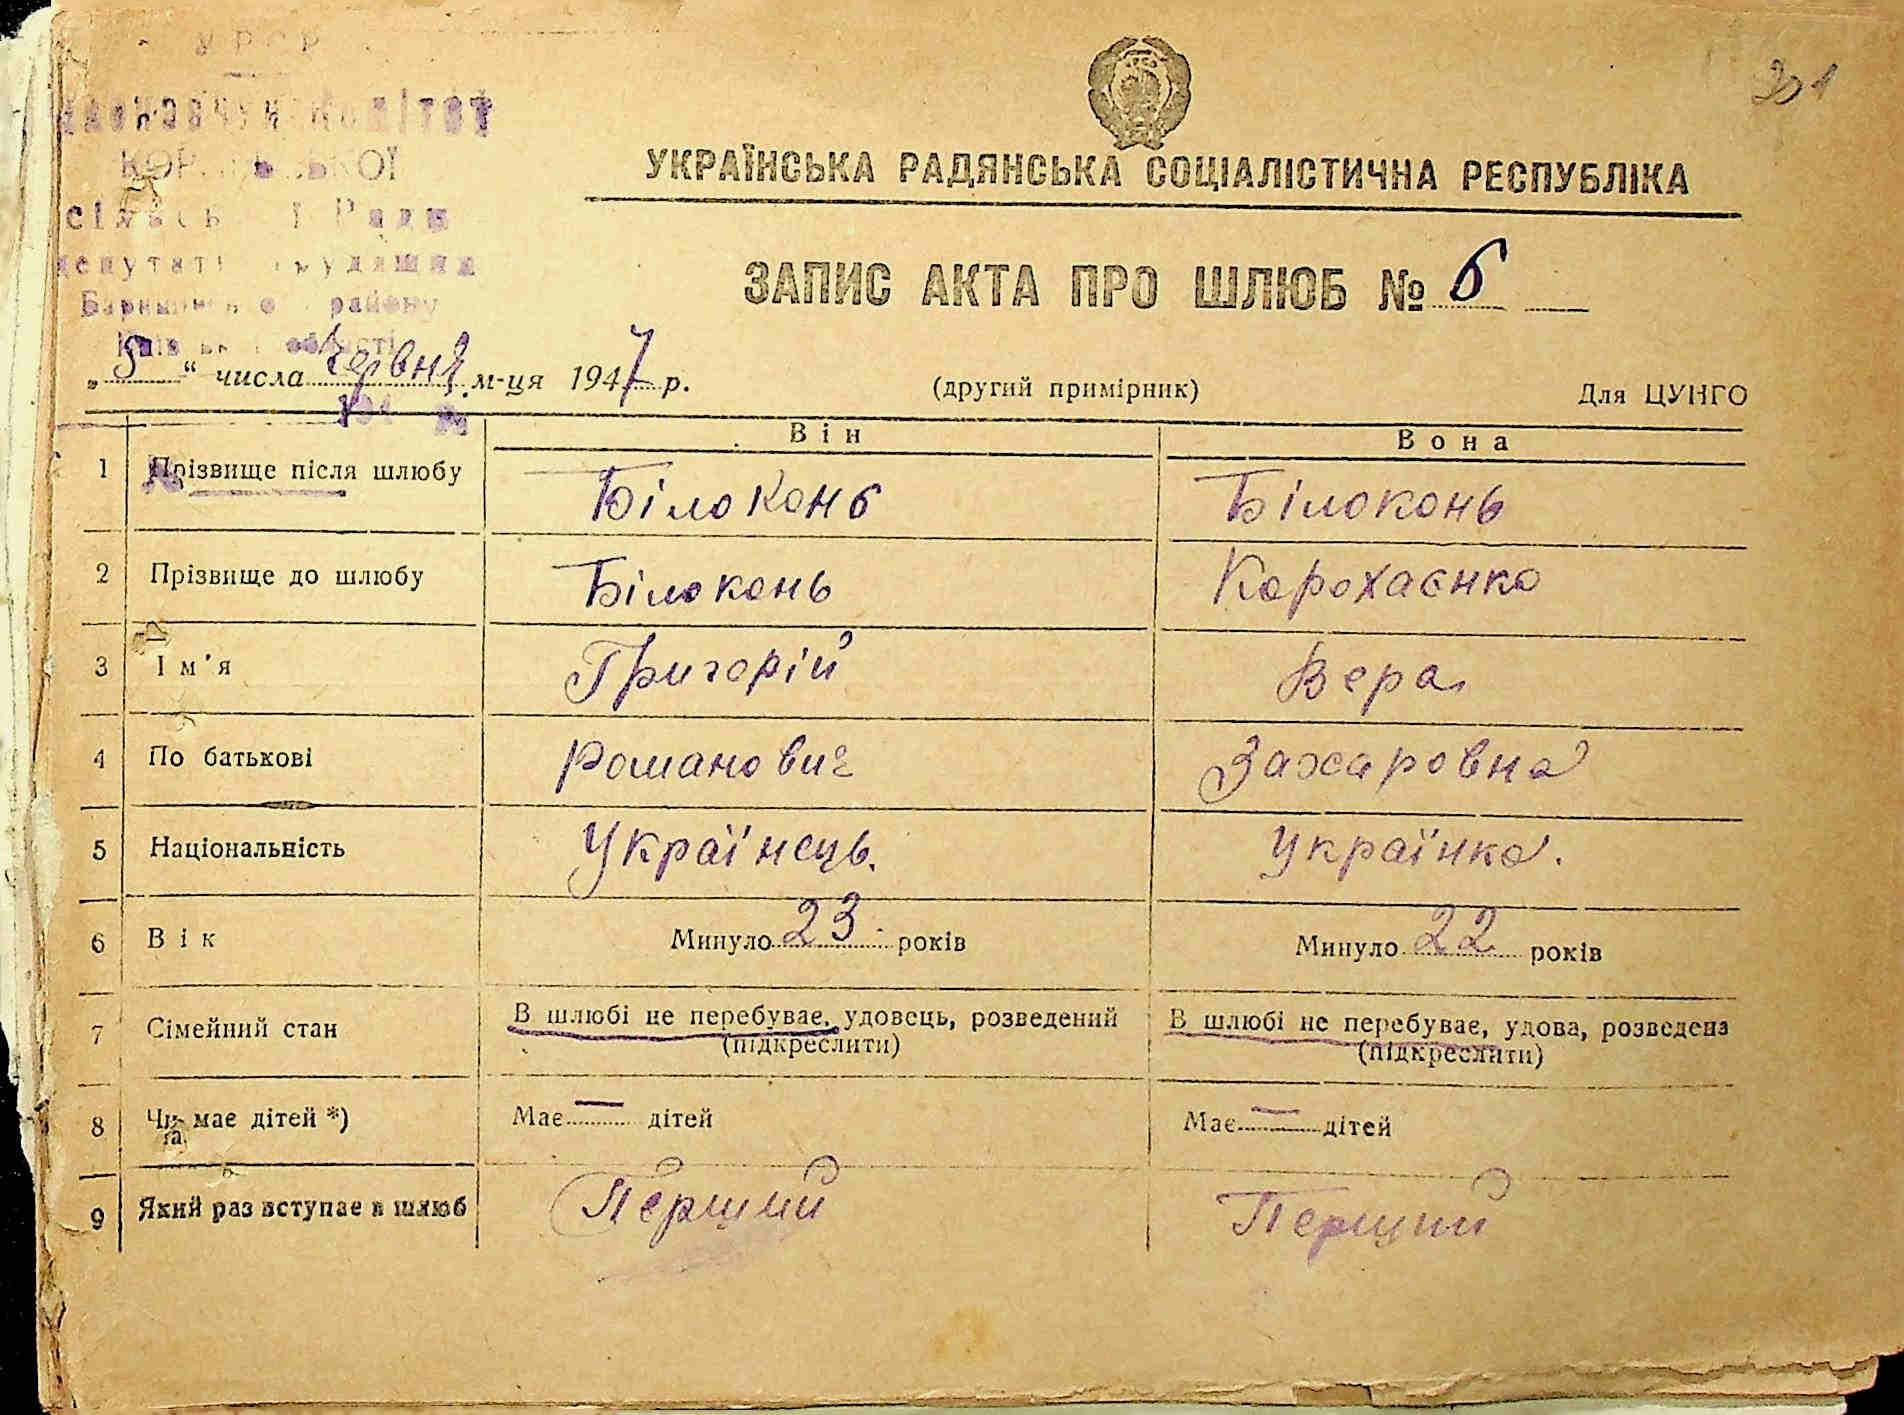 УРСР
комітет
сільської Ради
депутатів трудящих
району
області
УКРАЇНСЬКА РАДЯНСЬКА СОЦІАЛІСТИЧНА РЕСПУБЛІКА
ЗАПИС АКТА ПРО ШЛЮБ № 6
„5“ числа Червня м-ця 1947 р.
(другий примірник)
Для ЦУНГО
194 р.
Він Вона
1 Прізвище після шлюбу Білоконь Білоконь
2 Прізвище до шлюбу Білоконь Корохаєнко
3 Ім'я Григорій Вера
4 По батькові Романович Захаровна
5 Національність Українець. Українка.
6 Вік Минуло 23 років Минуло 22 років
7 Сімейний стан В шлюбі не перебуває, удовець, розведений В шлюбі не перебуває, удова, розведена
(підкреслити) (підкреслити)
8 Чи має дітей *) Має — дітей Має — дітей
9 Який раз вступає в шлюб Перший Перший